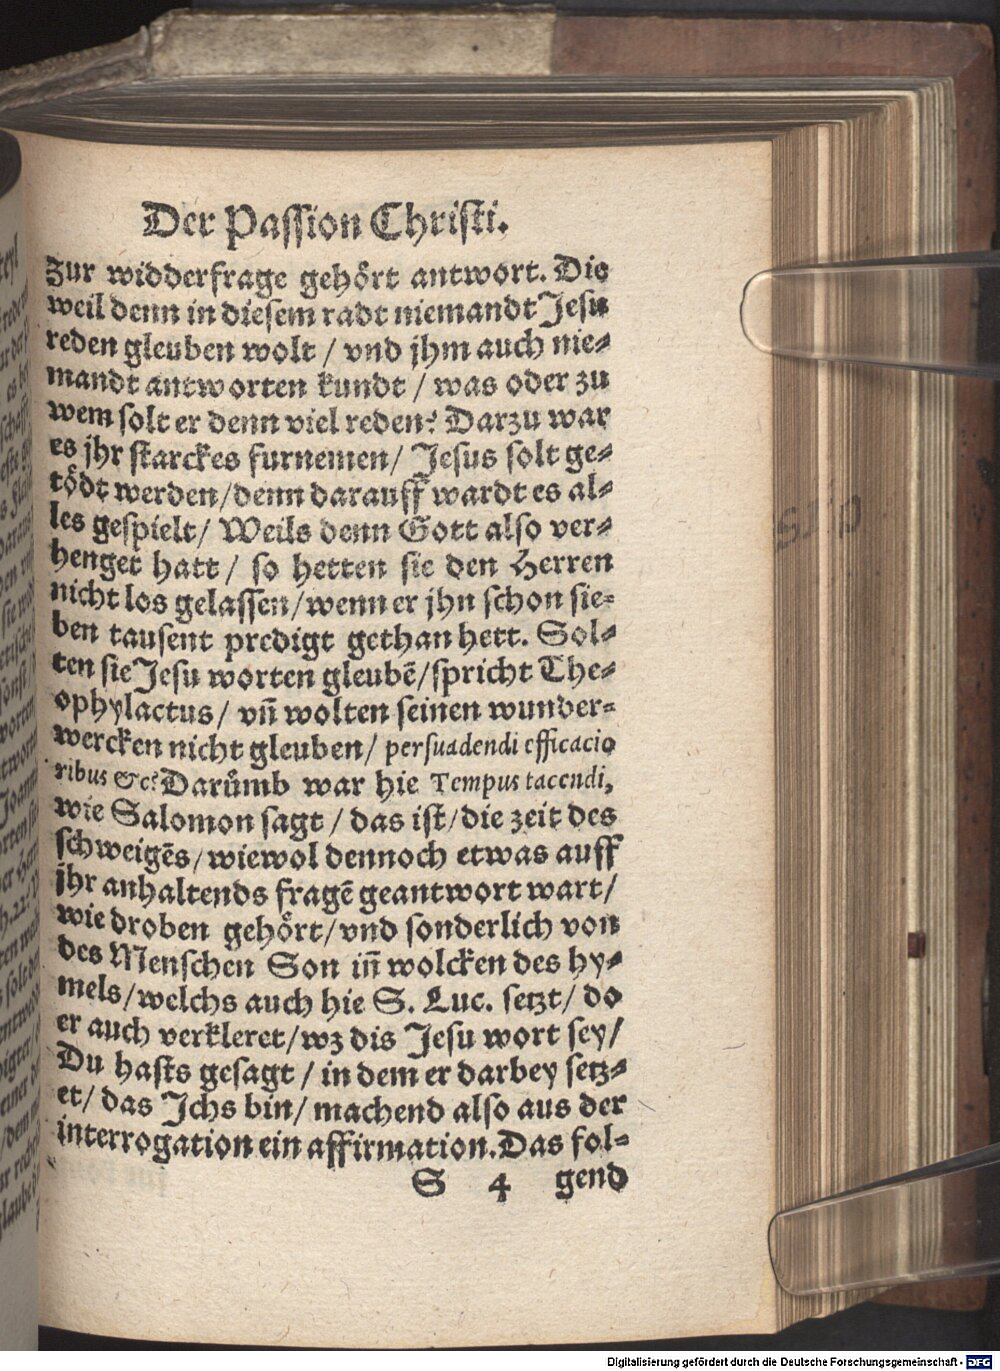 Der Passion Christi.
zur widderfrage gehört antwort. Die
weil denn in diesem radt niemandt Jesu
reden gleuben wolt / vnd jhm auch nie⸗
mandt antworten kundt / was oder zu
wem solt er denn viel reden? Darzu war
es jhr starckes furnemen / Jesus solt ge⸗
tödt werden / denn darauff wardt es al⸗
les gespielt / Weils denn Gott also ver⸗
henget hatt / so hetten sie den Herren
nicht los gelassen / wenn er jhn schon sie⸗
ben tausent predigt gethan hett. Sol⸗
ten sie Jesu worten gleubē / spricht The⸗
ophylactus / vn̄ wolten seinen wunder⸗
wercken nicht gleuben / persuadendi efficacio
ribus &c? Darůmb war hie Tempus tacendi,
wie Salomon sagt / das ist / die zeit des
schweigēs / wiewol dennoch etwas auff
jhr anhaltends fragē geantwort wart /
wie droben gehört / vnd sonderlich von
des Menschen Son in̄ wolcken des hy⸗
mels / welchs auch hie S. Luc. setzt / do
er auch verkleret / wz dis Jesu wort sey /
Du hasts gesagt / in dem er darbey setz⸗
et / das Ichs bin / machend also aus der
interrogation ein affirmation. Das fol⸗
S 4 gend
Digitalisierung gefördert durch die Deutsche Forschungsgemeinschaft - DFG